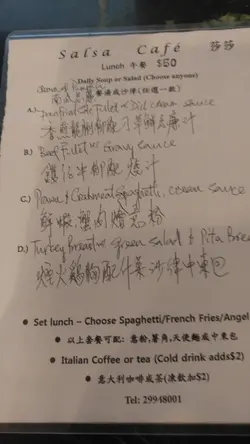 Salsa Café 莎莎
Lunch 午餐 $50
Daily Soup or Salad (Choose anyone)
餐湯或沙律(任選一款)
A.) Sole Fillet w Dill cream sauce
香煎龍脷柳配刁草忌廉汁
B.) Beef Fillet w Gravy sauce
牛柳配燒汁
C.) Prawn & Crabmeat Spaghetti, cream sauce
鮮蝦蟹肉燴意粉
D.) Turkey Breast w green salad & Pita Brea
煙火雞胸配什菜沙律中東包
● Set lunch – Choose Spaghetti/French Fries/Angel
● 以上套餐可配: 意粉,薯角,天使麵或中東包
● Italian Coffee or tea (Cold drink adds$2)
● 意大利咖啡或茶(凍飲加$2)
Tel: 29948001